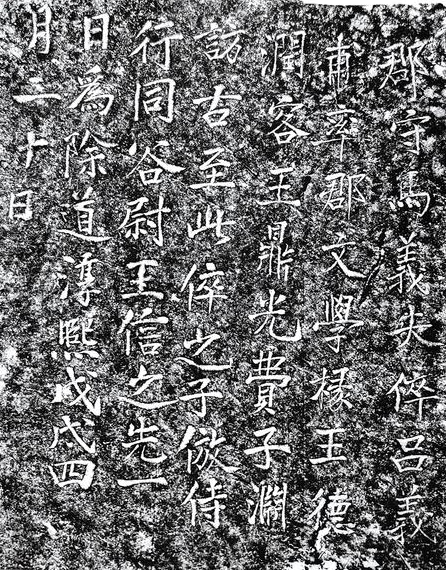 郡守馬義夫倅呂義
甫率郡文學掾王德
潤客王鼎光費子淵
訪古至此倅之子侍
行同谷尉王信之先一
日為除道淳熙戊戌四
月二十日